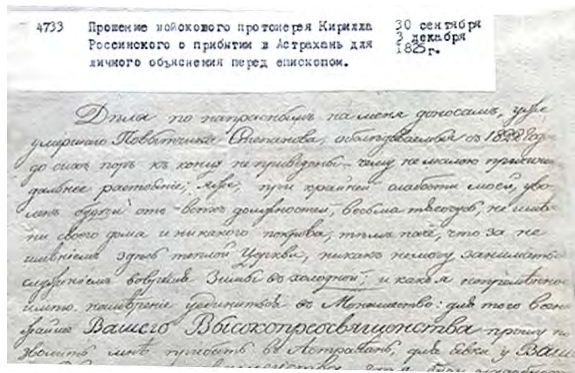 4733 Прошение войскового протоиерея Кирилла 30 сентября
Россинского о прибытии в Астрахань для 3 декабря
личного объяснения перед епископом. 1825г.
Дѣла по напраснымъ на меня доносамъ, уже
умершаго Повытчика Степанова, съ 1822 года
до сихъ поръ къ концу не приведены – чему не малою причиною
дальнее растоѣніе; мнѣ, при крайней слабости моей, уво-
ленъ будучи отъ всѣхъ должностей, весьма тягостно, не имѣя
ни своего дома и никакого покрова, тѣмъ паче, что за не
имѣніемъ здѣсь теплой Церкви, никакъ немогу заниматься
служеніемъ вовремя Зимы въ холодной; и какъ я непремѣнное
имѣю намѣреніе уединиться въ Монашество: для того всени-
жайше Вашего Высокопреосвященства прошу по-
зволить мнѣ прибыть въ Астрахань, для явки у Ваш